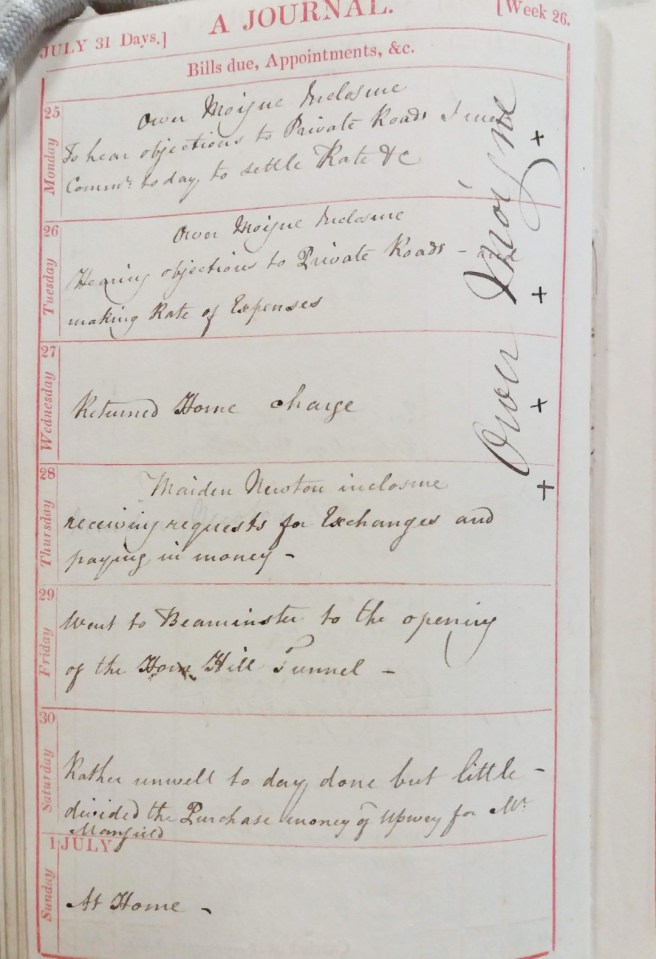 JULY 31 Days.]
A JOURNAL.
[Week 26.
Bills due, Appointments, &c.
25
Monday
Ower Moigne Inclosure
To hear objections to Private Roads I met
Comm.rs to day, to settle Rate &c
26
Tuesday
Ower Moigne Inclosure
Hearing objections to Private Roads - and
making Rate of Expenses
27
Wednesday
Returned Home charge
28
Thursday
Maiden Newton inclosure
receiving requests for Exchanges and
paying in money -
29
Friday
Went to Beaminster to the opening
of the Horn Hill Tunnel -
30
Saturday
Rather unwell to day, done but little -
divided the Purchase money of Upwey for Mr
Manfield
1 JULY
Sunday
At Home -
Ower Moigne
+
+
+
+